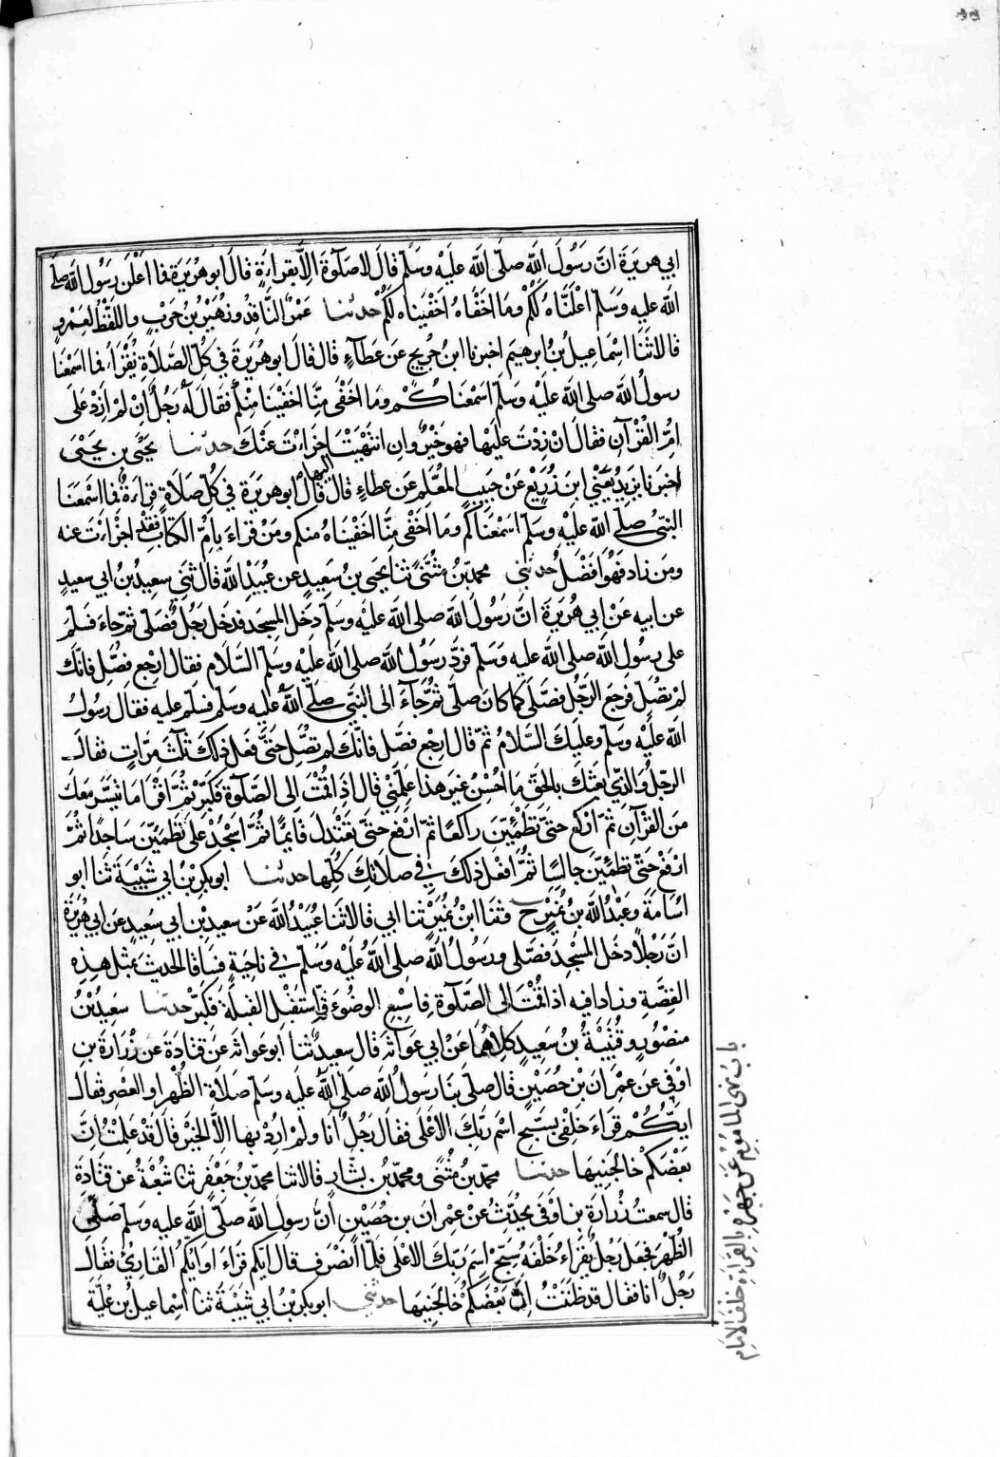 ابي هريرة ان رسول الله صلى الله عليه وسلم قال لا صلوة الا بقراءة قال ابو هريرة فما اعلن رسول الله صلى
الله عليه وسلم اعلناه لكم وما اخفاه اخفيناه لكم حدثنا عمرو الناقد وزهير بن حرب واللفظ لعمرو
قالا ثنا اسماعيل بن ابرهيم اخبرنا ابن جريج عن عطاء قال قال ابو هريرة في كل الصلاة نقرأ فما اسمعنا
رسول الله صلى الله عليه وسلم اسمعناكم وما اخفى منا اخفينا منكم فقال له رجل ان لم ازد على
ام القرآن فقال ان زدت عليها فهو خير وان انتهيت اليها اجزاءت عنك حدثنا يحيى بن يحيى
اخبرنا يزيد يعني ابن زريع عن حبيب المعلم عن عطاء قال قال ابو هريرة في كل صلاة قراءة فما اسمعنا
النبي صلى الله عليه وسلم اسمعناكم وما اخفى منا اخفيناه منكم ومن قراء بام الكتاب فقد اجزاءت عنه
ومن زاد فهو افضل حدثني محمد بن مثنى ثنا يحيى بن سعيد عن عبيد الله قال ثني سعيد بن ابي سعيد
عن ابيه عن ابي هريرة ان رسول الله صلى الله عليه وسلم دخل المسجد فدخل رجل فصلى ثم جاء فسلم
على رسول الله صلى الله عليه وسلم فرد رسول الله صلى الله عليه وسلم السلام فقال ارجع فصل فانك
لم تصل فرجع الرجل فصلى كما كان صلى ثم جاء الى النبي صلى الله عليه وسلم فسلم عليه فقال رسول
الله عليه وسلم وعليك السلام ثم قال ارجع فصل فانك لم تصل حتى فعل ذلك ثلث مرات فقال
الرجل والذي بعثك بالحق ما احسن غير هذا علمني قال اذا قمت الى الصلوة فكبر ثم اقرا ما تيسر معك
من القرآن ثم اركع حتى تطمئن راكعا ثم ارفع حتى تعتدل قايما ثم اسجد على تطمئن ساجدا ثم
ارفع حتى تطمئن جالسا ثم افعل ذلك في صلاتك كلها حدثنا ابو بكر بن ابي شيبة ثنا ابو
اسامة وعبد الله بن نمير ح وثنا ابن نمير ثنا ابي قالا ثنا عبيد الله عن سعيد بن ابي سعيد عن ابي هريرة
ان رجلا دخل المسجد فصلى ورسول الله صلى الله عليه وسلم في ناحية فساقا الحديث بمثل هذه
القصة وزادا فيه اذا قمت الى الصلوة فاسبغ الوضوء ثم استقبل القبلة فكبر حدثنا سعيد بن
منصور وقتيبة بن سعيد كلاهما عن ابي عوانة قال سعيد ثنا ابو عوانة عن قتادة عن زرارة بن
اوفى عن عمران بن حصين قال صلى بنا رسول الله صلى الله عليه وسلم صلاة الظهر او العصر فقال
ايكم قراء خلفي بسبح اسم ربك الاعلى فقال رجل انا ولم ارد بها الا الخير قال قد علمت ان
بعضكم خالجنيها حدثنا محمد بن مثنى ومحمد بن بشار قالا ثنا محمد بن جعفر ثنا شعبة عن قتادة
قال سمعت زرارة بن اوفى يحدث عن عمران بن حصين ان رسول الله صلى الله عليه وسلم صلى
الظهر فجعل رجل يقراء خلفه بسبح اسم ربك الاعلى فلما انصرف قال ايكم قراء او ايكم القاري فقال
رجل انا فقال قد ظننت ان بعضكم خالجنيها حدثني ابو بكر بن ابي شيبة ثنا اسماعيل بن علية
باب نهي الماموم عن جهره بالقراءة خلف الامام